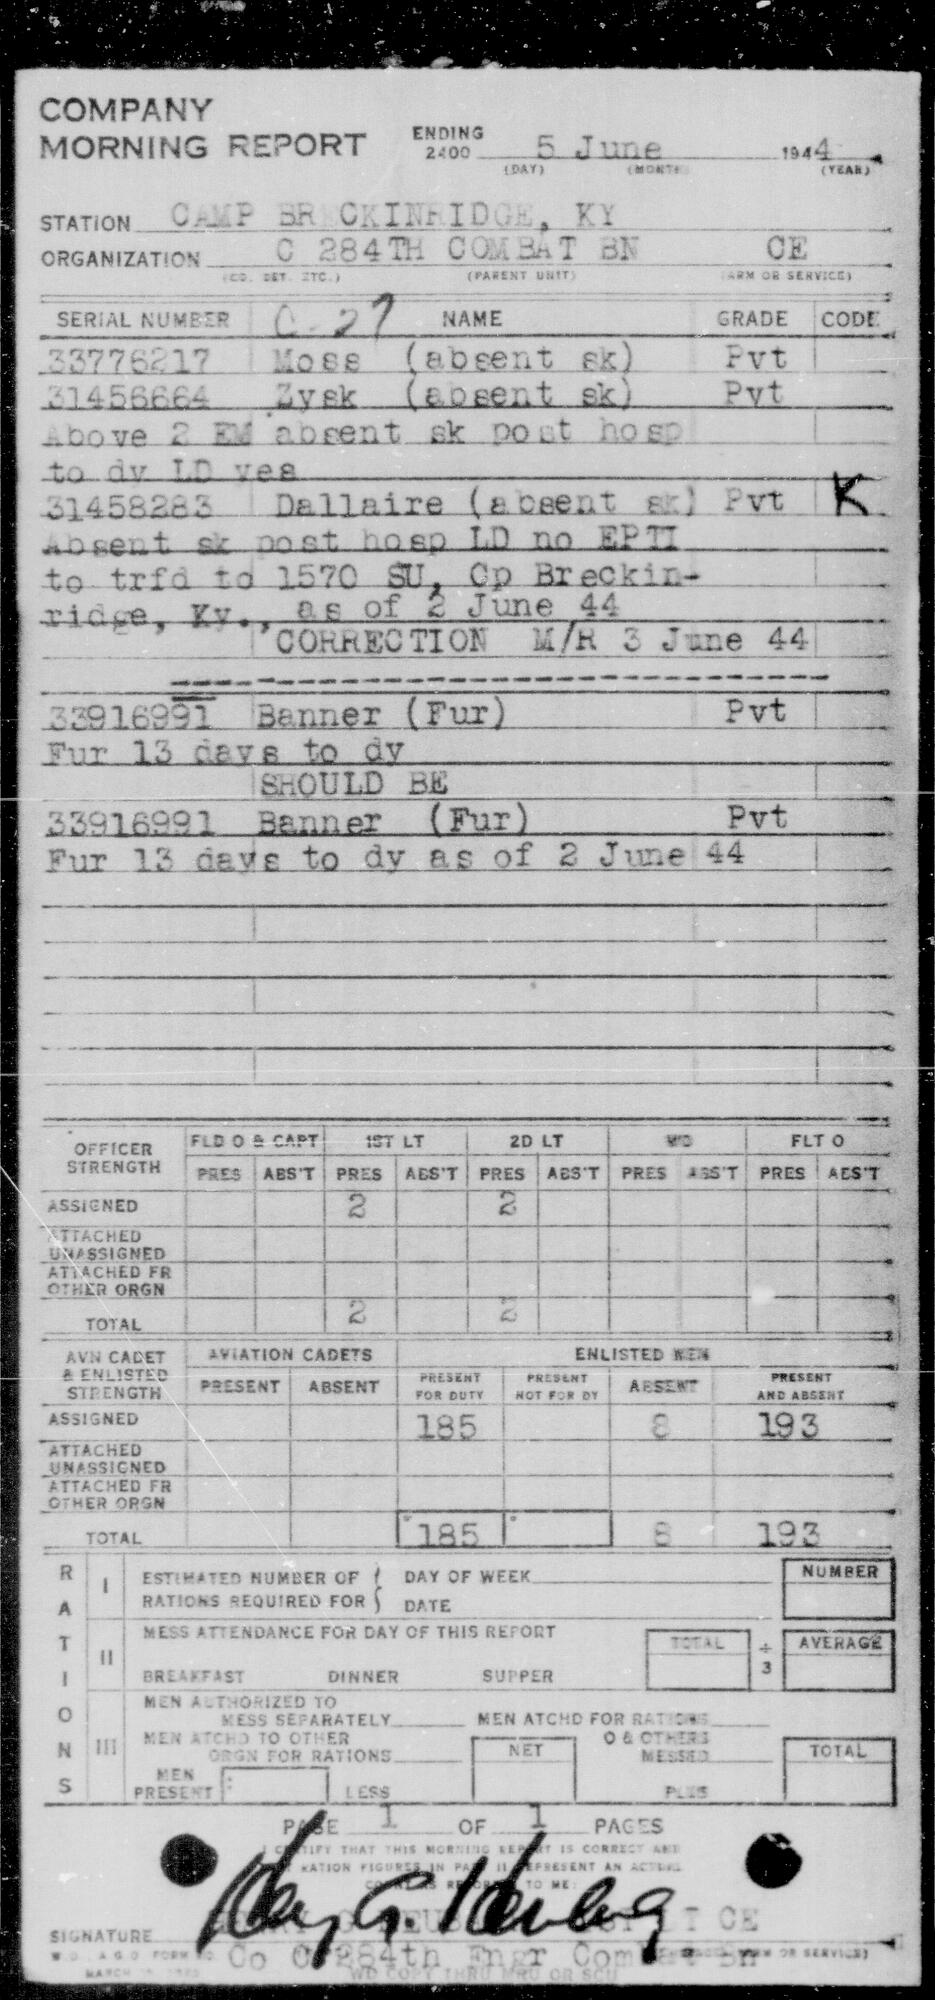 COMPANY
MORNING REPORT ENDING 2400 5 June 1944
(DAY) (MONTH) (YEAR)
STATION CAMP BR CKINRIDGE, KY
ORGANIZATION C 284TH COMBAT BN CE
(CO. DET. ETC.) (PARENT UNIT) (ARM OR SERVICE)
SERIAL NUMBER C-27 NAME GRADE CODE
33776217 Moss (absent sk) Pvt
31456664 Zysk (absent sk) Pvt
Above 2 EM absent sk post hosp
to dy LD yes
31458283 Dallaire (absent sk) Pvt K
Absent sk post hosp LD no EPTI
to trfd to 1570 SU, Cp Breckin-
ridge, Ky., as of 2 June 44
CORRECTION M/R 3 June 44
33916991 Banner (Fur) Pvt
Fur 13 days to dy
SHOULD BE
33916991 Banner (Fur) Pvt
Fur 13 days to dy as of 2 June 44
OFFICER STRENGTH FLD O & CAPT 1ST LT 2D LT WO FLT O
PRES ABS'T PRES ABS'T PRES ABS'T PRES ABS'T PRES ABS'T
ASSIGNED 2 2
ATTACHED UNASSIGNED
ATTACHED FR OTHER ORGN
TOTAL 2 2
AVN CADET & ENLISTED STRENGTH AVIATION CADETS ENLISTED MEN
PRESENT ABSENT PRESENT FOR DUTY PRESENT NOT FOR DY ABSENT PRESENT AND ABSENT
ASSIGNED 185 8 193
ATTACHED UNASSIGNED
ATTACHED FR OTHER ORGN
TOTAL 185 8 193
RATIONS
I ESTIMATED NUMBER OF RATIONS REQUIRED FOR { DAY OF WEEK DATE NUMBER
II MESS ATTENDANCE FOR DAY OF THIS REPORT TOTAL ÷ 3 AVERAGE
BREAKFAST DINNER SUPPER
III MEN AUTHORIZED TO MESS SEPARATELY MEN ATCHD FOR RATIONS
MEN ATCHD TO OTHER ORGN FOR RATIONS NET O & OTHERS MESSED TOTAL
MEN PRESENT LESS PLUS
PAGE 1 OF 1 PAGES
I CERTIFY THAT THIS MORNING REPORT IS CORRECT AND
RATION FIGURES IN PART II REPRESENT AN ACTUAL
COUNT AS REPORTED TO ME:
SIGNATURE CE
W.D., A.G.O. FORM Co C 284th Engr Combat Bn
MARCH WD COPY THRU MRU OR SCU